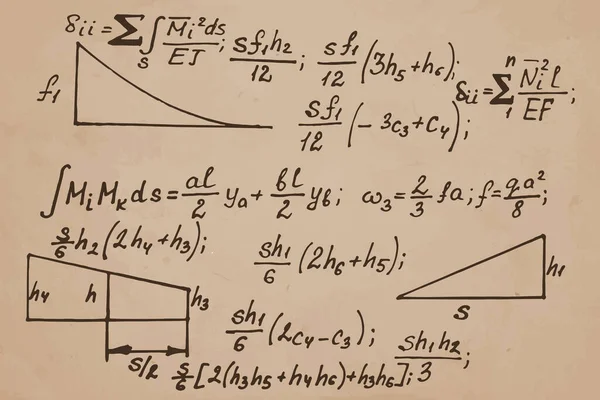 δii = ∑ ∫s M̅i²ds/EJ ; sf1h2/12 ; sf1/12 (3h5+h6);
f1
δii = ∑ⁿ₁ N̅i²l/EF ;
sf1/12 (-3c3+c4);
∫MiMKds = al/2 ya + bl/2 yb; ω3 = 2/3 fa; f = qa²/8 ;
s/6 h2(2h4+h3);
sh1/6 (2h6+h5);
h4 h h3
h1
s
sh1/6 (2c4-c3);
sh1h2/3 ;
s/2
s/6 [2(h3h5+h4h6)+h3h6];